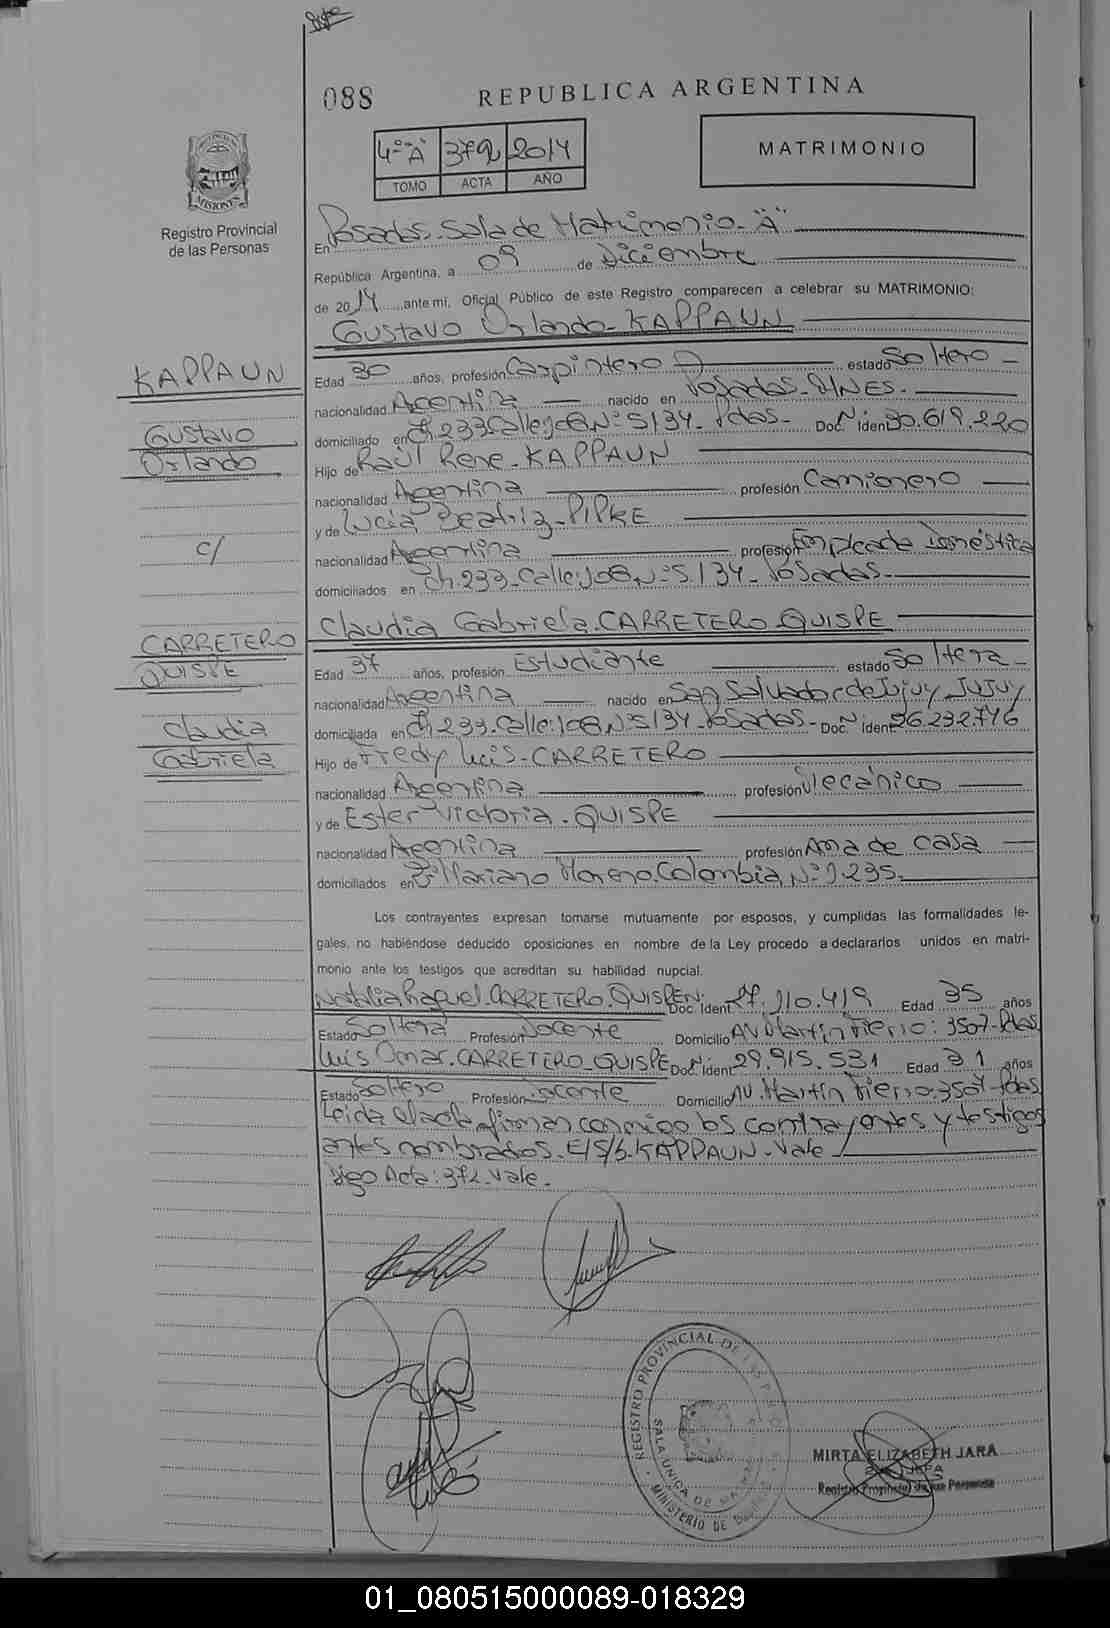 088
REPUBLICA ARGENTINA
4º "A" 372 2014
TOMO ACTA AÑO
MATRIMONIO
MISIONES
Registro Provincial
de las Personas
En Posadas. Sala de Matrimonio. "A"
República Argentina, a 09 de Diciembre
de 2014 ante mi, Oficial Público de este Registro comparecen a celebrar su MATRIMONIO:
Gustavo Orlando. KAPPAUN
KAPPAUN
Gustavo
Orlando
c/
CARRETERO
QUISPE
Claudia
Gabriela
Edad 30 años, profesión Carpintero estado Soltero
nacionalidad Argentina nacido en Posadas. MNES.
domiciliado en Ch.233.Calle:108.Nº:5134. Pdas. Doc. N. Ident 30.619.220
Hijo de Raúl Rene. KAPPAUN
nacionalidad Argentina profesión Camionero
y de Lucia Beatriz. PIPKE
nacionalidad Argentina profesión Empleada Doméstica
domiciliados en Ch.233.Calle:108.Nº:5134. Posadas.
Claudia Gabriela. CARRETERO QUISPE
Edad 37 años, profesión Estudiante estado Soltera
nacionalidad Argentina nacido en San Salvador de Jujuy JUJUY
domiciliada en Ch.233.Calle:108.Nº:5134. Posadas. Doc. N. Ident 26.232.746
Hijo de Fredy Luis. CARRETERO
nacionalidad Argentina profesión Mecánico
y de Ester Victoria. QUISPE
nacionalidad Argentina profesión Ama de casa
domiciliados en Bº Mariano Moreno. Colombia. Nº:1.235.
Los contrayentes expresan tomarse mutuamente por esposos, y cumplidas las formalidades le-
gales, no habiéndose deducido oposiciones en nombre de la Ley procedo a declararlos unidos en matri-
monio ante los testigos que acreditan su habilidad nupcial.
Natalia Raquel. CARRETERO. QUISPE N: Doc. Ident 27.110.419 Edad 35 años
Estado Soltera Profesión Docente Domicilio AV Martin Fierro: 3507. Pdas
Luis Omar. CARRETERO QUISPE Doc. N. Ident 29.915.531 Edad 31 años
Estado Soltero Profesión Docente Domicilio AV. Martín Fierro.3507. Pdas
Leida el acta firman conmigo los contrayentes y testigos
antes nombrados. E/S/b. KAPPAUN. Vale
Digo Acta: 372. Vale.
REGISTRO PROVINCIAL DE LAS
SALA UNICA DE
MINISTERIO DE
MIRTA ELIZABETH JARA
JEFA
Registro Provincial de las Personas
01_080515000089-018329